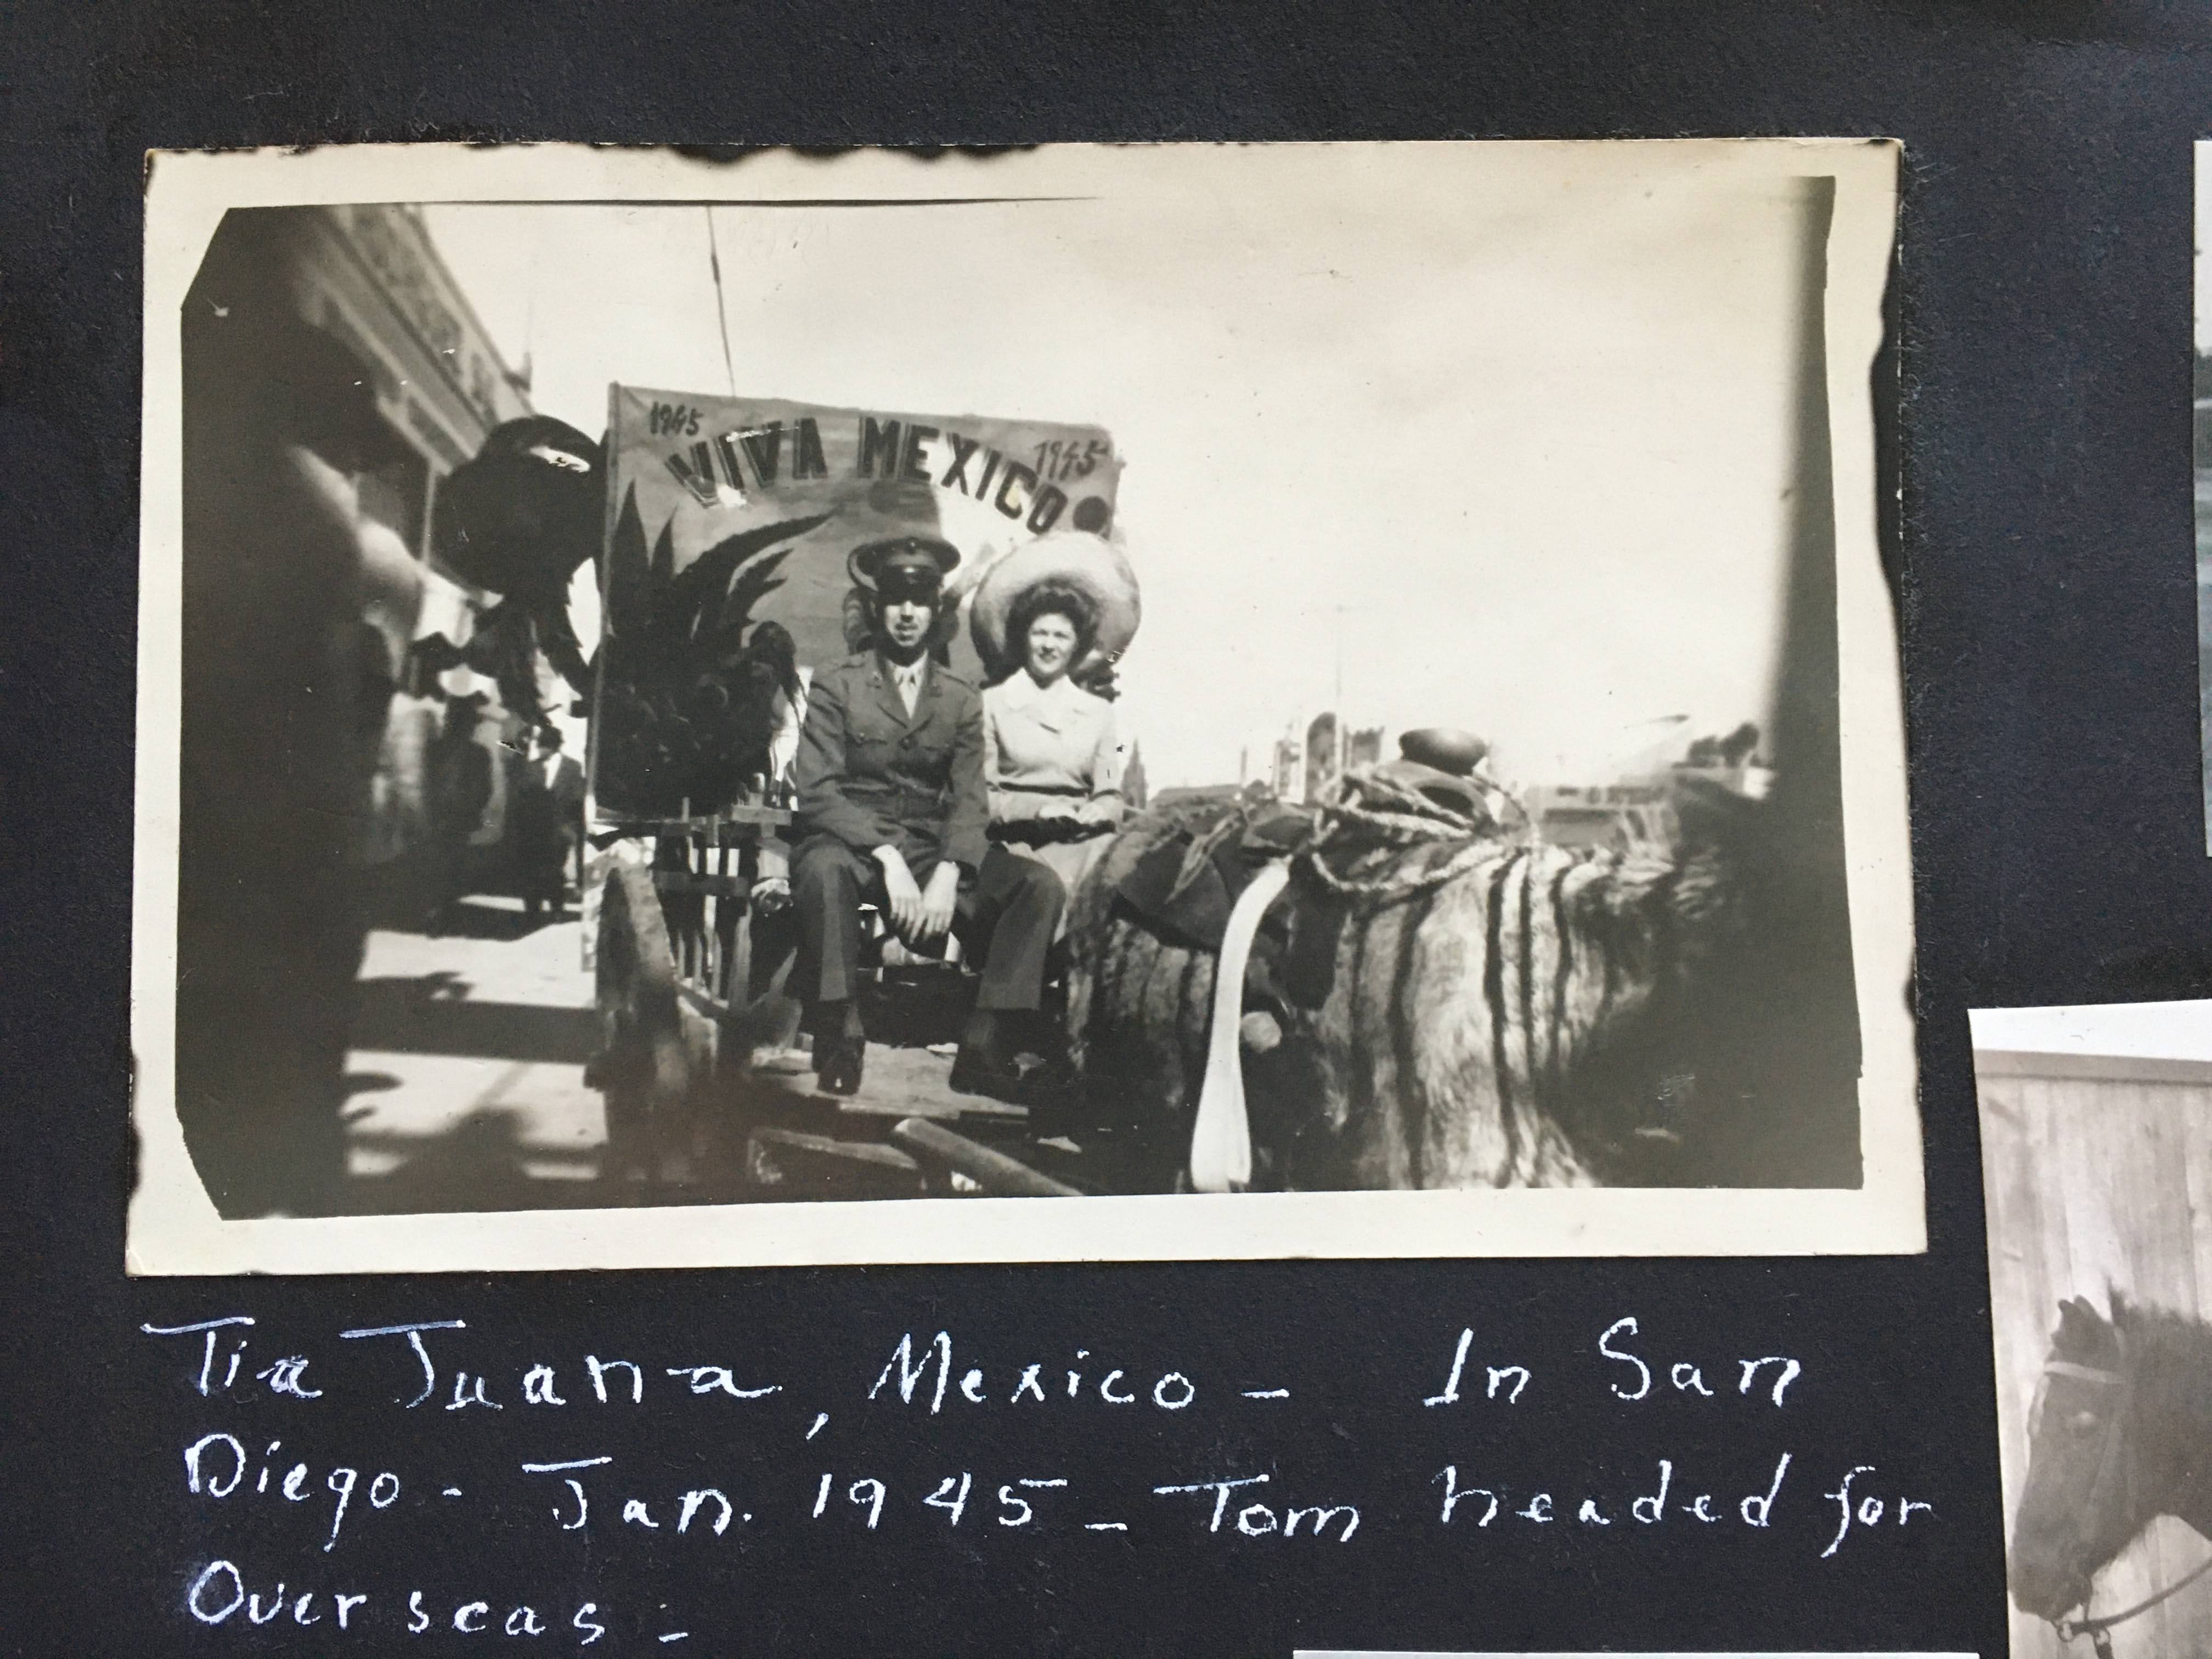 1945
VIVA MEXICO
1945
Tia Juana, Mexico - In San
Diego - Jan. 1945 - Tom headed for
Overseas -